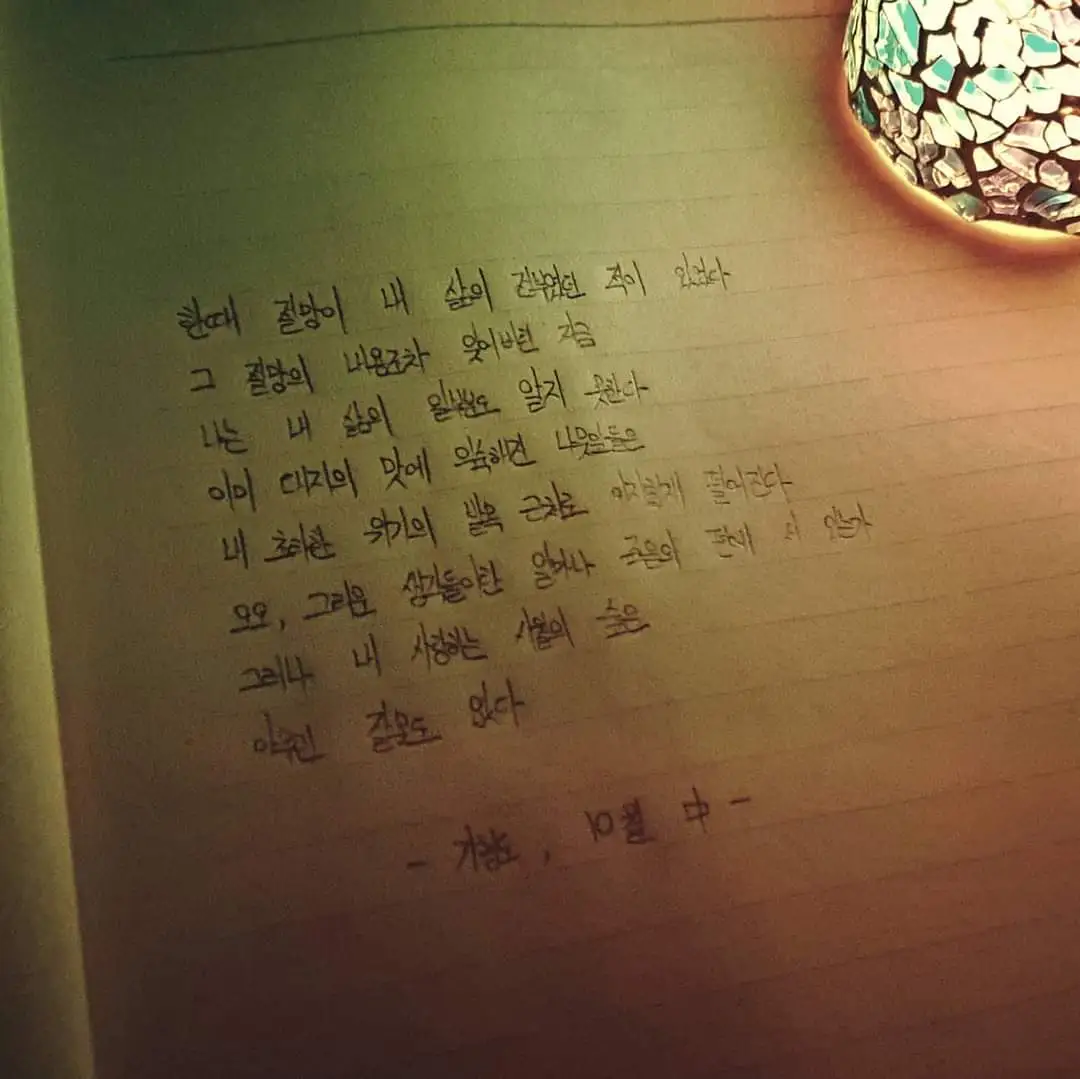 한때 절망이 내 삶의 전부였던 적이 있었다
그 절망의 내용조차 잊어버린 지금
나는 내 삶의 일부분도 알지 못한다
이미 대지의 맛에 익숙해진 나뭇잎들은
내 초라한 위기의 발목 근처로 어지럽게 떨어진다
오오, 그리운 생각들이란 얼마나 죽음의 편에 서 있는가
그러나 내 사랑하는 시월의 숲은
아무런 잘못도 없다
- 기형도, 10월 中 -